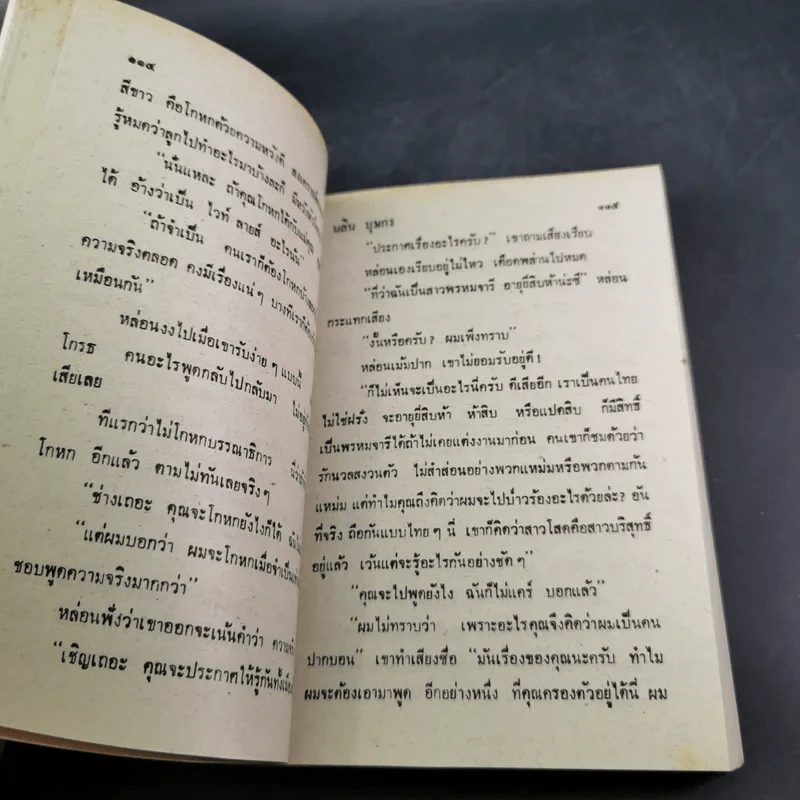 ๑๑๔
สีขาว คือโกหกด้วยความหวังดี
รู้หมดว่าลูกไปทำอะไรมาบ้างละก็
“นั่นแหละ ถ้าคุณโกหกได้กับแม่คุณ
ได้ อ้างว่าเป็น ไวท์ ลายส์ อะไรนั่น”
“ถ้าจำเป็น คนเราก็ต้องโกหกบ้าง
ความจริงตลอด คงมีเรื่องแน่ๆ บางทีเราก็ต้อง
เหมือนกัน”
หล่อนงงไปเมื่อเขารับง่ายๆ แบบนี้
โกรธ คนอะไรพูดกลับไปกลับมา
เสียเลย
ทีแรกว่าไม่โกหกบรรณาธิการ
โกหก อีกแล้ว ตามไม่ทันเลยจริงๆ
“ช่างเถอะ คุณจะโกหกยังไงก็ได้
“แต่ผมบอกว่า ผมจะโกหกเมื่อจำเป็น
ชอบพูดความจริงมากกว่า”
หล่อนฟังว่าเขาออกจะเน้นคำว่า
“เชิญเถอะ คุณจะประกาศให้รู้กันทั้งเมือง
นลิน บุษกร
๑๑๕
“ประกาศเรื่องอะไรครับ?” เขาถามเสียงเรียบ
หล่อนเองเรียบอยู่ไม่ไหว เดือดพล่านไปหมด
“ที่ว่าฉันเป็นสาวพรหมจารี อายุยี่สิบห้าน่ะซี” หล่อน
กระแทกเสียง
“งั้นหรือครับ? ผมเพิ่งทราบ”
หล่อนเม้มปาก เขาไม่ยอมรับอยู่ดี!
“ก็ไม่เห็นจะเป็นอะไรนี่ครับ ดีเสียอีก เราเป็นคนไทย
ไม่ใช่ฝรั่ง จะอายุยี่สิบห้า ห้าสิบ หรือแปดสิบ ก็มีสิทธิ์
เป็นพรหมจารีได้ถ้าไม่เคยแต่งงานมาก่อน คนเขาก็ชมด้วยว่า
รักนวลสงวนตัว ไม่สำส่อนอย่างพวกแหม่มหรือพวกตามก้น
แหม่ม แต่ทำไมคุณถึงคิดว่าผมจะไปป่าวร้องอะไรด้วยล่ะ? อัน
ที่จริง ถือกันแบบไทยๆ นี่ เขาก็คิดว่าสาวโสดคือสาวบริสุทธิ์
อยู่แล้ว เว้นแต่จะรู้อะไรกันอย่างชัดๆ”
“คุณจะไปพูดยังไง ฉันก็ไม่แคร์ บอกแล้ว”
“ผมไม่ทราบว่า เพราะอะไรคุณจึงคิดว่าผมเป็นคน
ปากบอน” เขาทำเสียงซื่อ “มันเรื่องของคุณนะครับ ทำไม
ผมจะต้องเอามาพูด อีกอย่างหนึ่ง ที่คุณครองตัวอยู่ได้นี่ ผม